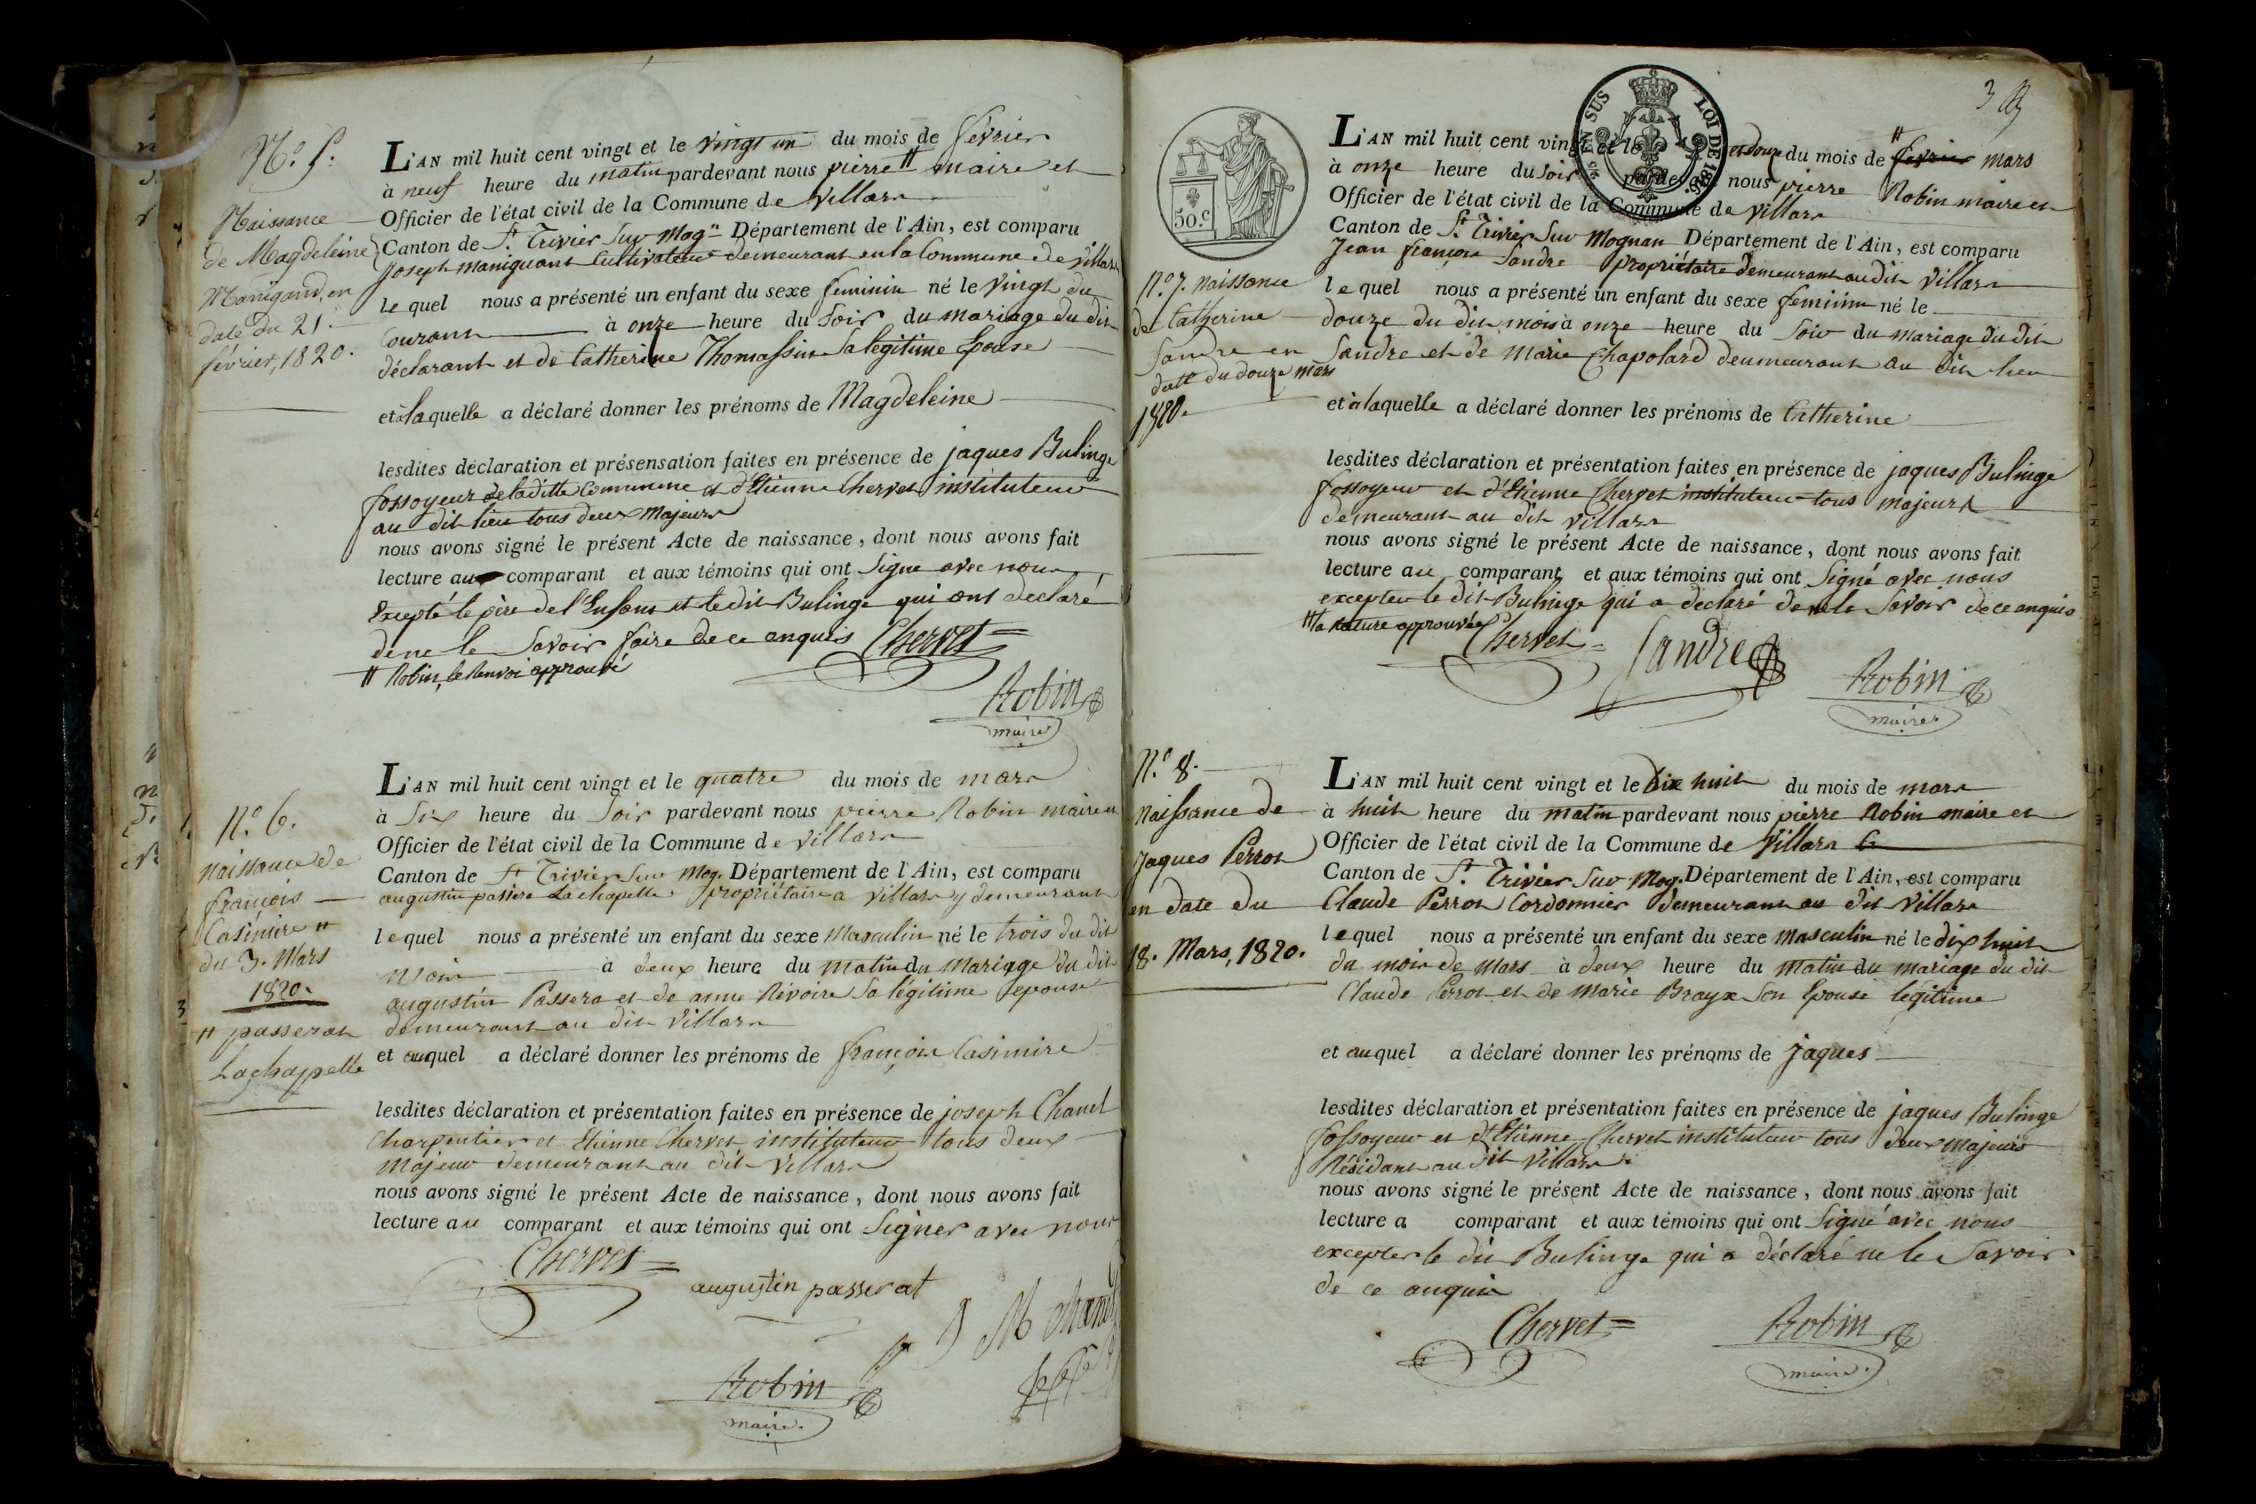 N.o 5.
Naissance
de Magdeleine
Manigand, en
date du 21.
février, 1820.
L'AN mil huit cent vingt et le vingt un du mois de février
à neuf heure du matin pardevant nous pierre # maire et
Officier de l'état civil de la Commune de Villars
Canton de St. Trivier Sur Mogn Département de l'Ain, est comparu
Joseph maniguant Cultivateur demeurant en la Commune de Villars
le quel nous a présenté un enfant du sexe feminin né le Vingt du
Courant à onze heure du Soir du mariage du dit
déclarant et de Catherine Thomassin Sa legitime Epouse
et à laquelle a déclaré donner les prénoms de Magdeleine
lesdites déclaration et présensation faites en présence de jaques Bulinge
fossoyeur de laditte Commune et d'Etienne Chervet instituteur
au dit lieu tous deux Majeurs
nous avons signé le présent Acte de naissance, dont nous avons fait
lecture au comparant et aux témoins qui ont Signe avec nous
Excepté le père de l'Enfant et ledit Bulinge qui ont declaré
de ne le Savoir faire de ce enquis Chervet
# Robin, le Renvoi approuvé
Robin
maire
N.o 6.
Naissance de
françois
Casimire #
du 3. Mars
1820.
# passerat
Lachappelle
L'AN mil huit cent vingt et le quatre du mois de mars
à Six heure du Soir pardevant nous pierre Robin maire et
Officier de l'état civil de la Commune de Villars
Canton de St Trivier Sur Mog. Département de l'Ain, est comparu
augustin passera Lachapelle propriétaire a Villars y demeurant
lequel nous a présenté un enfant du sexe Masculin né le trois du dit
Mois à deux heure du matin du Mariage du dit
augustin Passera et de anne Révoire Sa légitime epouse
demeurant au dit Villars
et auquel a déclaré donner les prénoms de françois Casimire
lesdites déclaration et présentation faites en présence de joseph Chanel
Charpentier et Etienne Chervet instituteur tous deux
Majeur demeurant au dit Villars
nous avons signé le présent Acte de naissance, dont nous avons fait
lecture au comparant et aux témoins qui ont Signer avec nous
Chervet
augustin passerat
Robin
maire.
3
EN SUS
LOI DE 1816.
50.c
N.o 7. Naissance
de Catherine
Sandre en
date du douze mars
1820.
L'AN mil huit cent vingt et le douze du mois de # fevrier mars
à onze heure du Soir pardevant nous pierre Robin maire et
Officier de l'état civil de la Commune de Villars
Canton de St. Trivier Sur Mognan Département de l'Ain, est comparu
Jean françois Sandre propriétaire demeurant au dit Villars
lequel nous a présenté un enfant du sexe feminin né le
douze du dit mois à onze heure du Soir du mariage du dit
Sandre et de Marie Chapolard demeurant au dit lieu
et à laquelle a déclaré donner les prénoms de Catherine
lesdites déclaration et présentation faites en présence de jaques Bulinge
fossoyeur et d'Etienne Chervet instituteur tous majeurs
demeurant au dit Villars
nous avons signé le présent Acte de naissance, dont nous avons fait
lecture au comparant et aux témoins qui ont Signé avec nous
excepter le dit Bulinge qui a déclaré de ne le Savoir de ce enquis
# la rature approuvée Chervet Sandre
Robin
maire
N.o 8.
Naissance de
Jaques Perrot
en date du
18. Mars, 1820.
L'AN mil huit cent vingt et le Dix huit du mois de mars
à huit heure du matin pardevant nous pierre Robin maire et
Officier de l'état civil de la Commune de Villars
Canton de St. Trivier Sur Mog. Département de l'Ain, est comparu
Claude Perrot Cordonnier demeurant au dit Villars
lequel nous a présenté un enfant du sexe masculin né le dix huit
du mois de Mars à deux heure du matin du mariage du dit
Claude Perrot et de Marie Brayx Son Epouse legitime
et auquel a déclaré donner les prénoms de Jaques
lesdites déclaration et présentation faites en présence de jaques Bulinge
fossoyeur et d'Etienne Chervet instituteur tous deux majeurs
Résidant au dit Villars
nous avons signé le présent Acte de naissance, dont nous avons fait
lecture a comparant et aux témoins qui ont Signé avec nous
excepter le dit Bulinge qui a déclaré ne le Savoir
de ce enquis
Chervet
Robin
maire.